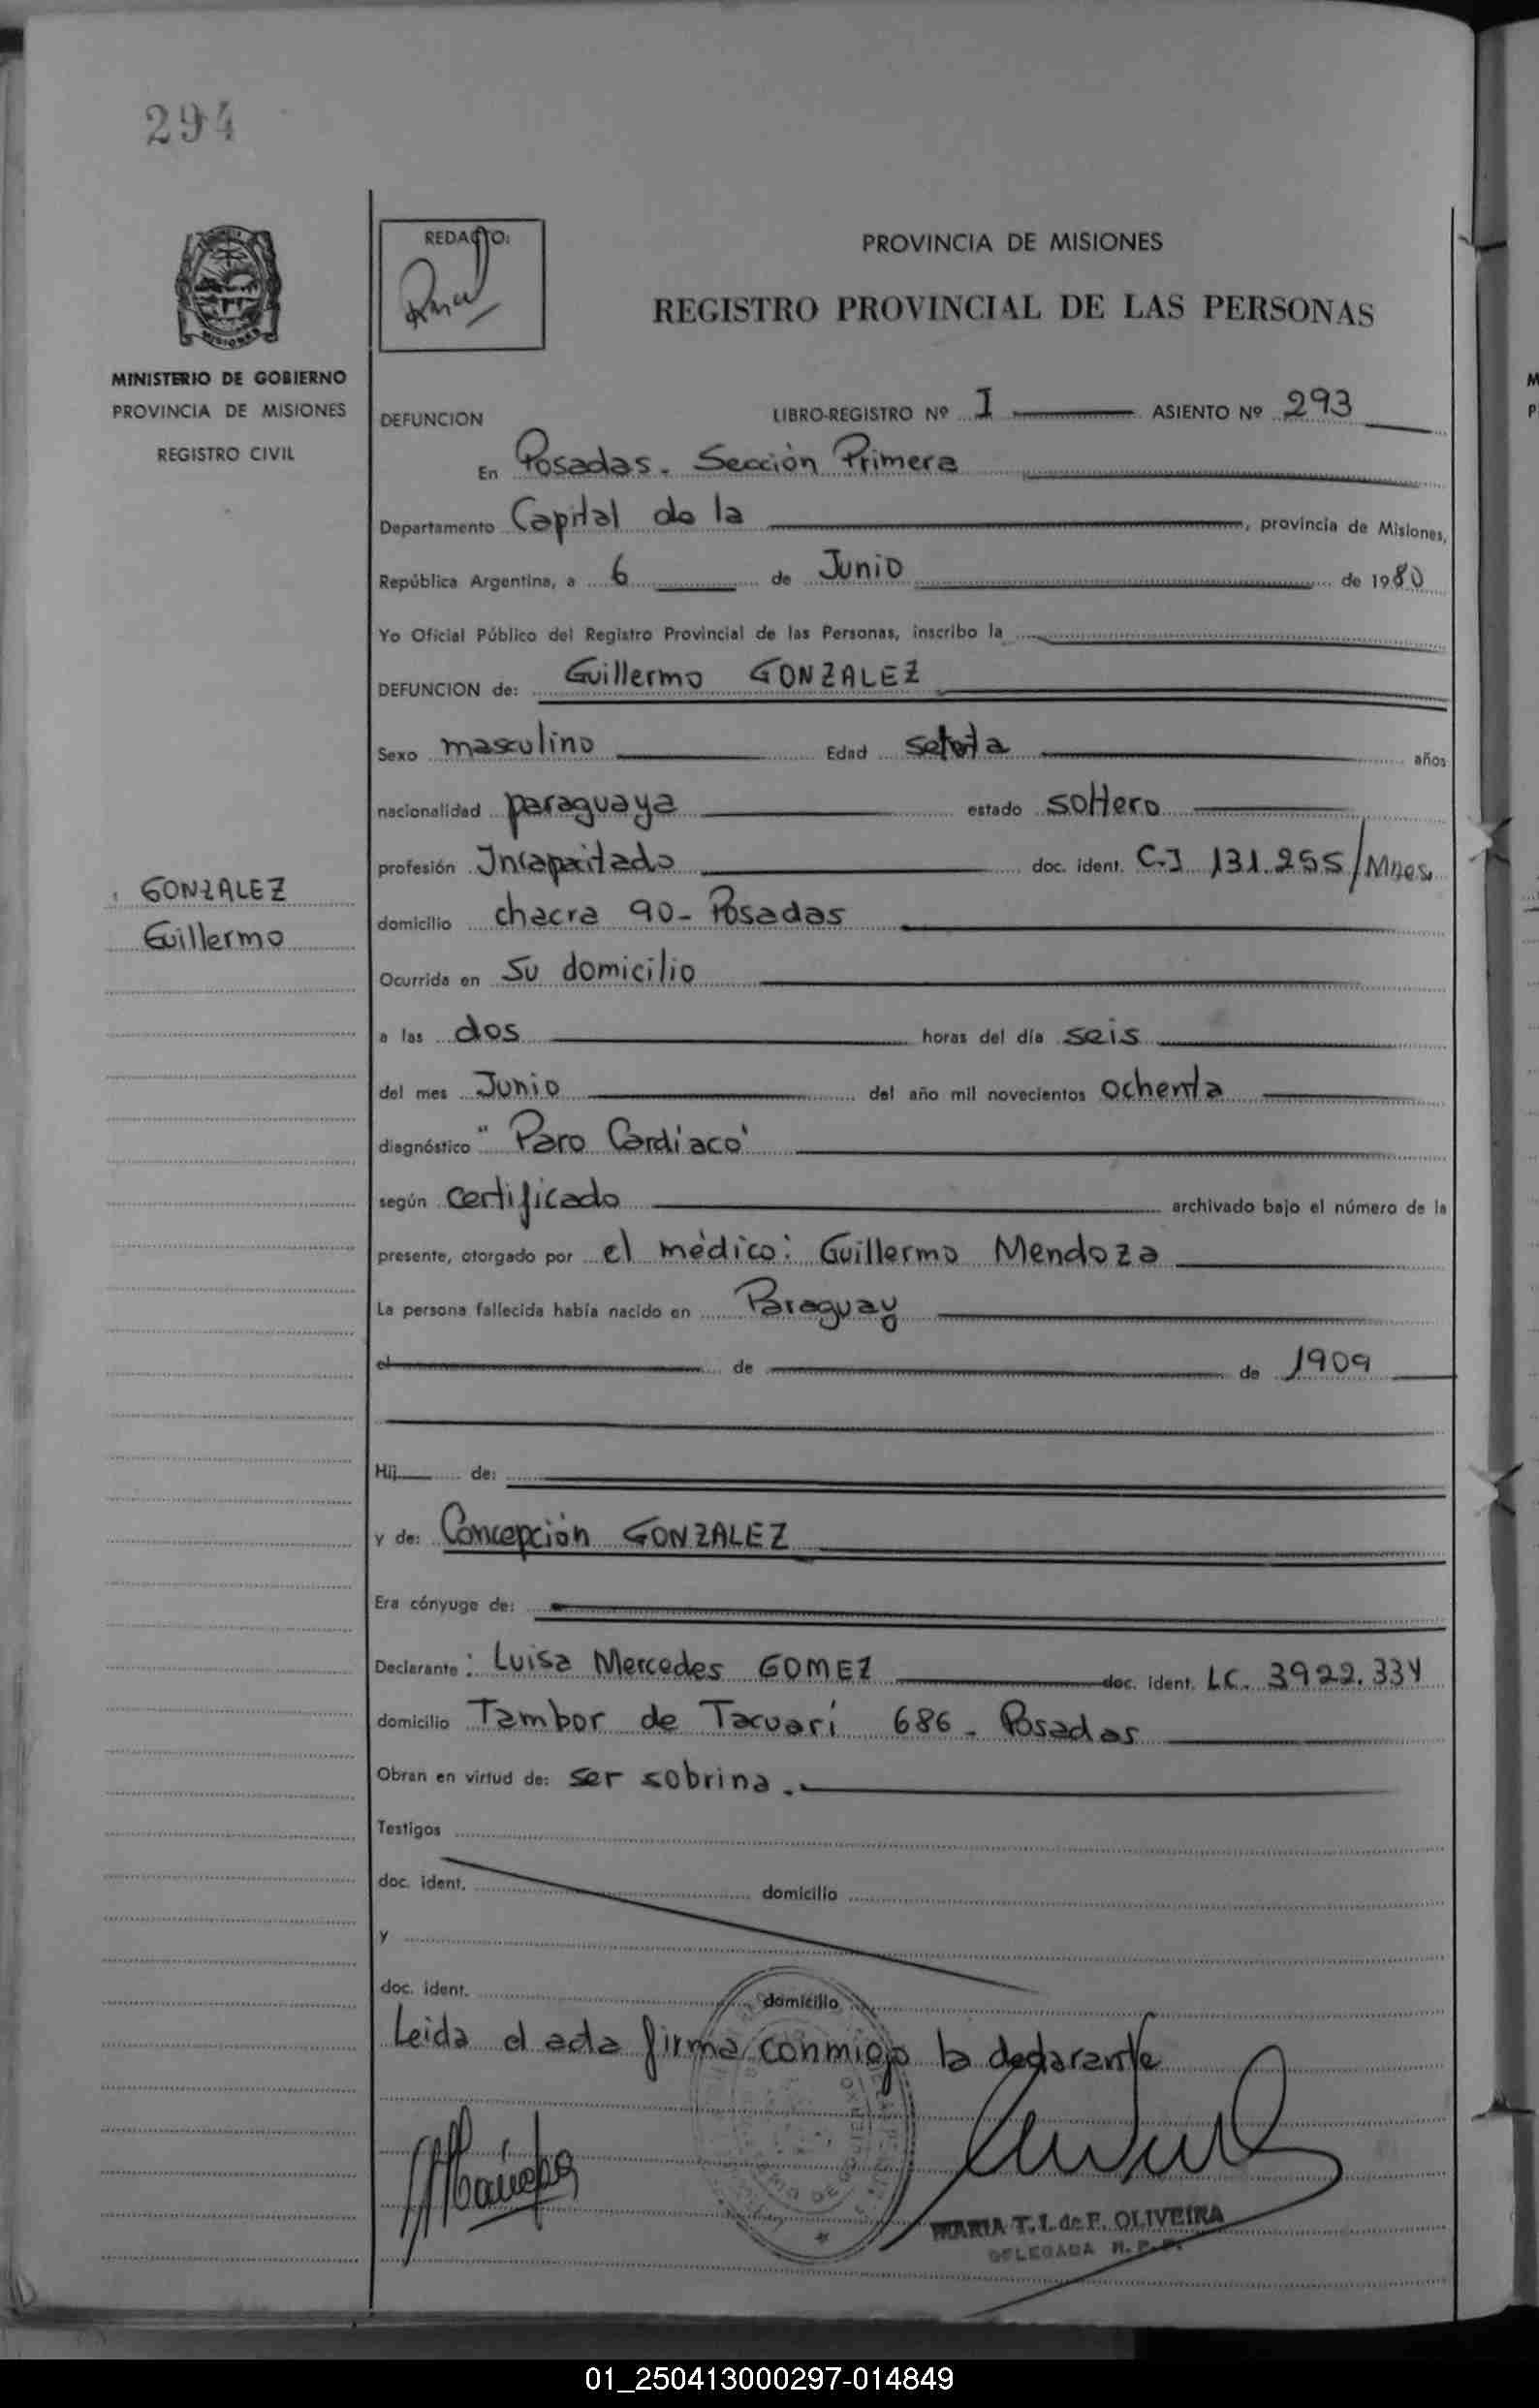 294
REDACTO:
PROVINCIA DE MISIONES
REGISTRO PROVINCIAL DE LAS PERSONAS
MISIONES
MINISTERIO DE GOBIERNO
PROVINCIA DE MISIONES
REGISTRO CIVIL
DEFUNCION LIBRO-REGISTRO Nº I ASIENTO Nº 293
En Posadas. Sección Primera
Departamento Capital de la , provincia de Misiones,
República Argentina, a 6 de Junio de 1980
Yo Oficial Público del Registro Provincial de las Personas, inscribo la
DEFUNCION de: Guillermo GONZALEZ
Sexo masculino Edad setenta años
nacionalidad paraguaya estado soltero
profesión Incapacitado doc. ident. C.I 131.255/Mnes.
GONZALEZ
Guillermo
domicilio chacra 90- Posadas
Ocurrida en su domicilio
a las dos horas del día seis
del mes Junio del año mil novecientos ochenta
diagnóstico "Paro Cardiaco"
según certificado archivado bajo el número de la
presente, otorgado por el médico: Guillermo Mendoza
La persona fallecida había nacido en Paraguay
el de de 1909
Hij de:
y de: Concepción GONZALEZ
Era cónyuge de:
Declarante: Luisa Mercedes GOMEZ doc. ident. LC. 3922.334
domicilio Tambor de Tacuarí 686 - Posadas
Obran en virtud de: ser sobrina.
Testigos
doc. ident. domicilio
y
doc. ident. domicilio
Leida el acta firma conmigo la declarante
MARIA T. I. de F. OLIVEIRA
DELEGADA R. P. P.
01_250413000297-014849